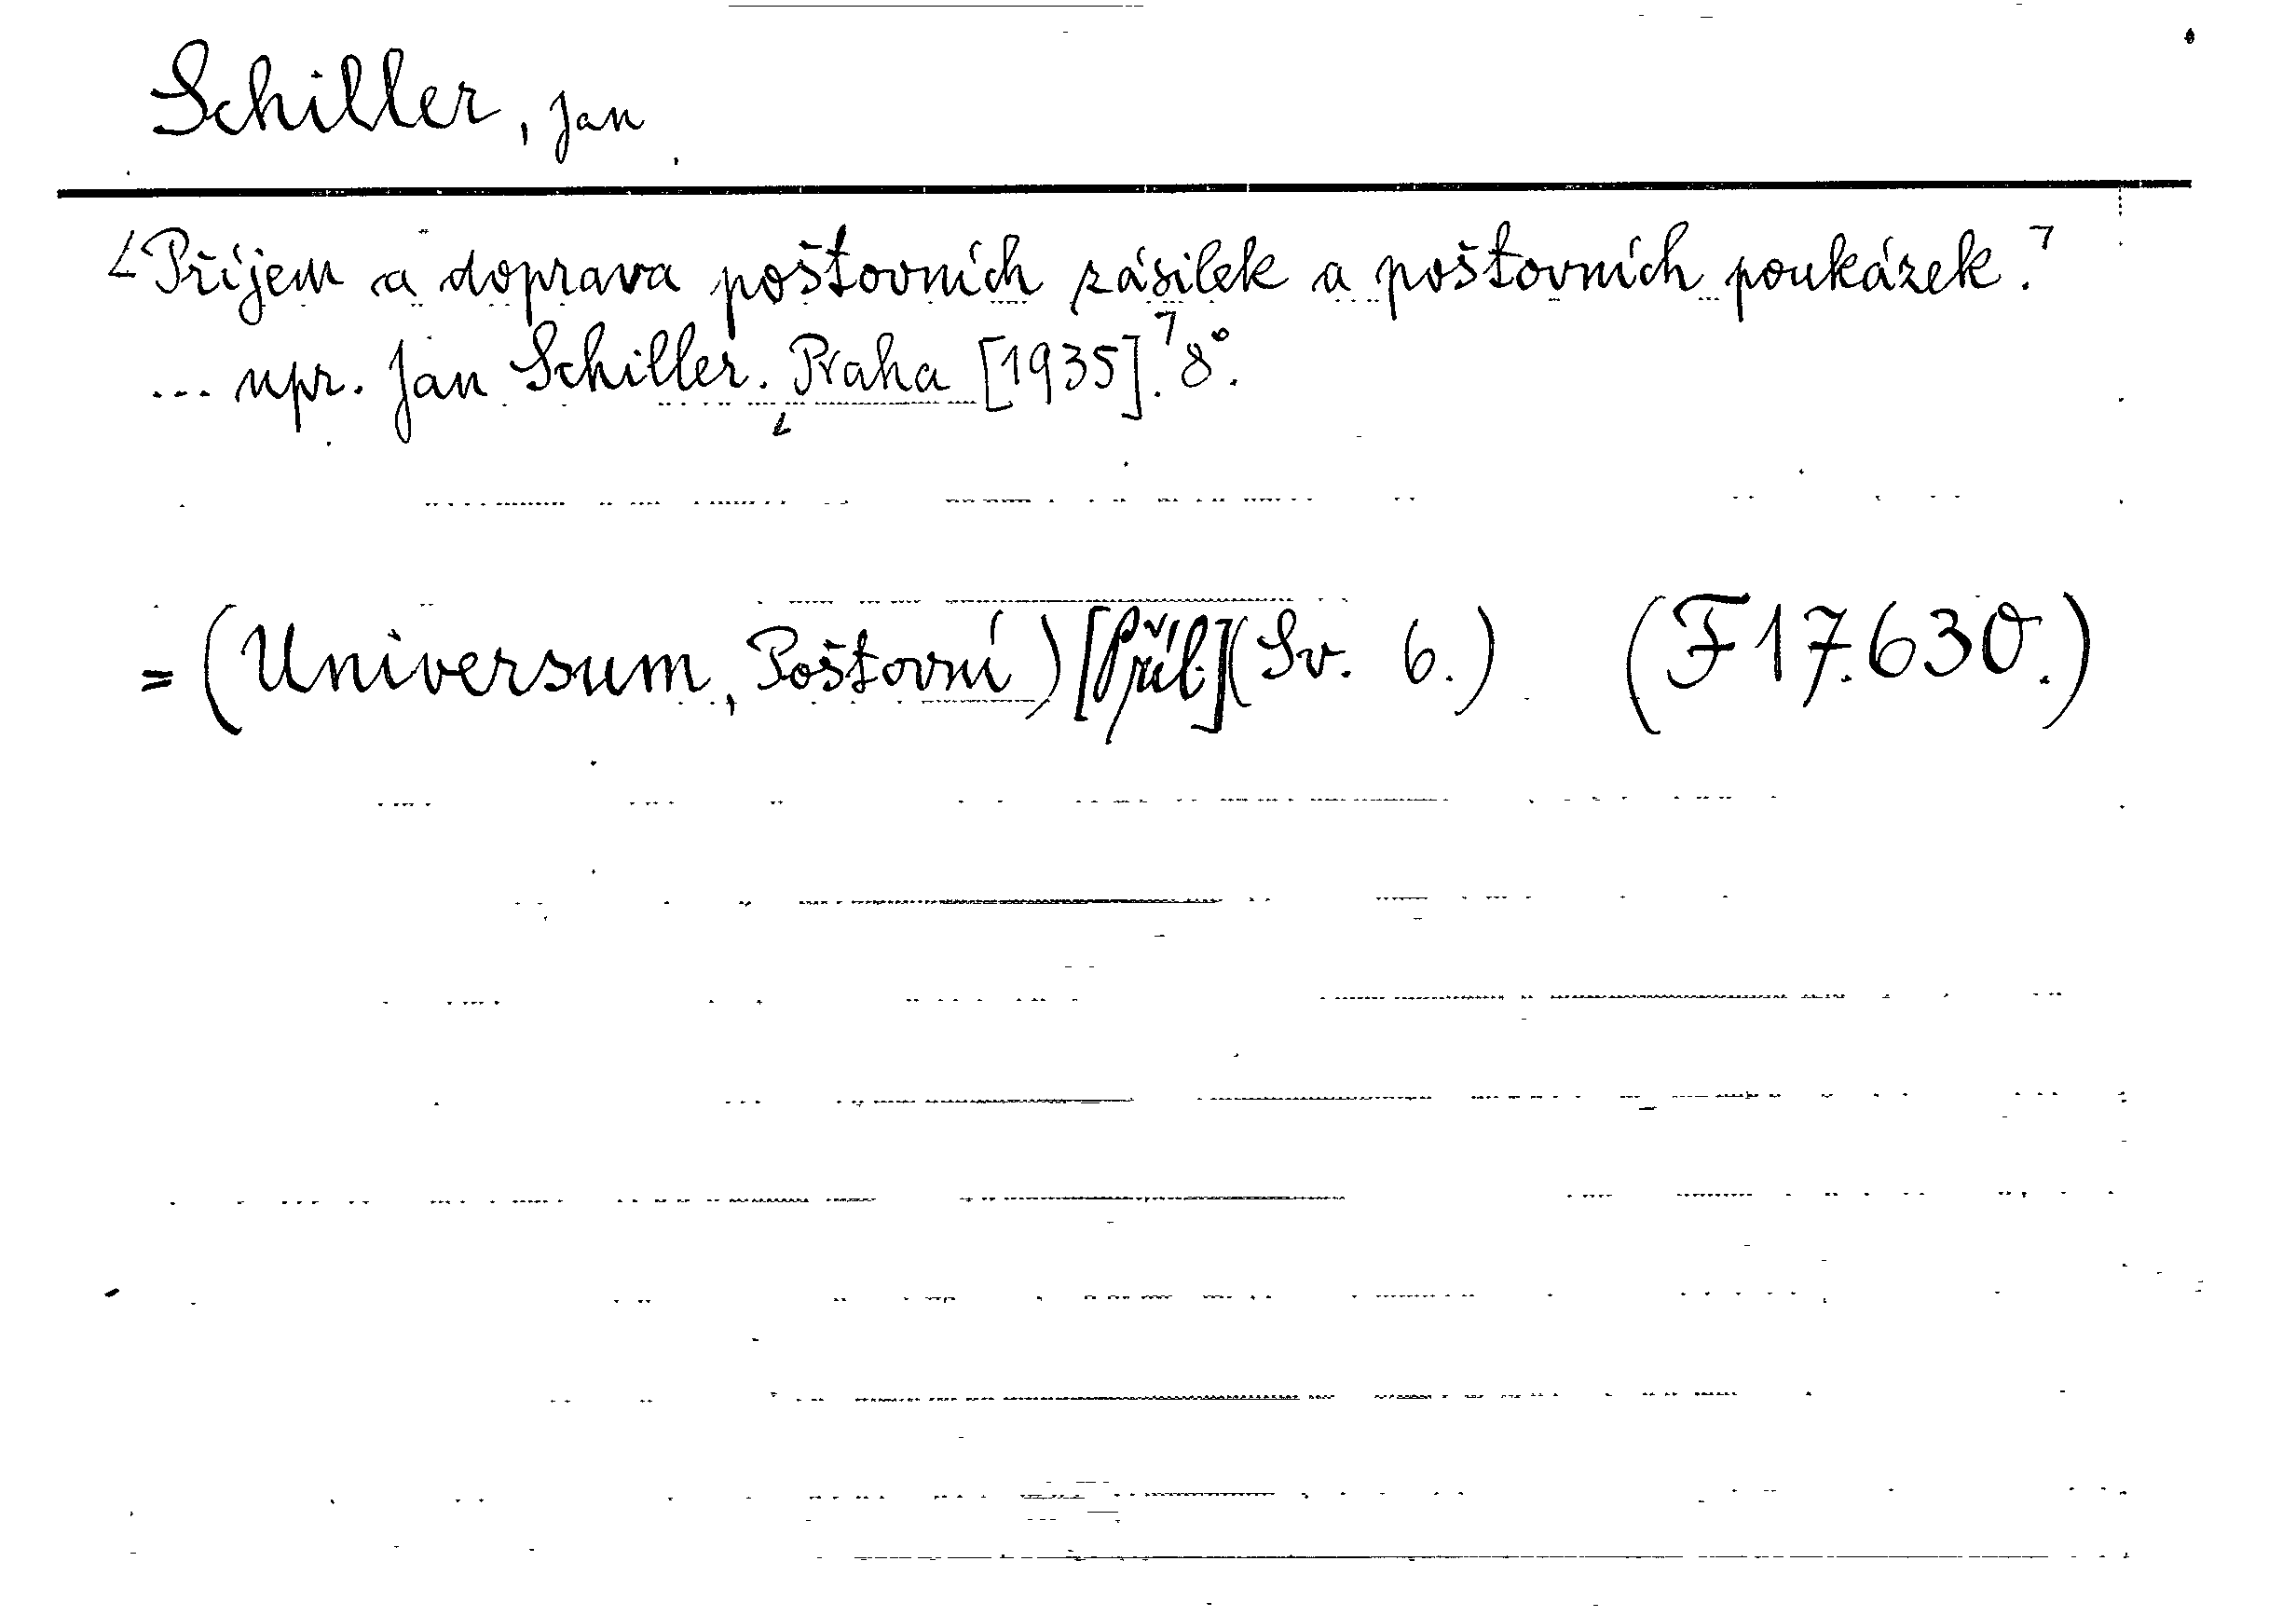 Schiller, Jan
Příjem a doprava poštovních zásilek a poštovních poukázek.
... upr. Jan Schiller. Praha [1935]. 8°.
= (Universum, Poštovní) [Příl.] (Sv. 6.) (F 17.630.)